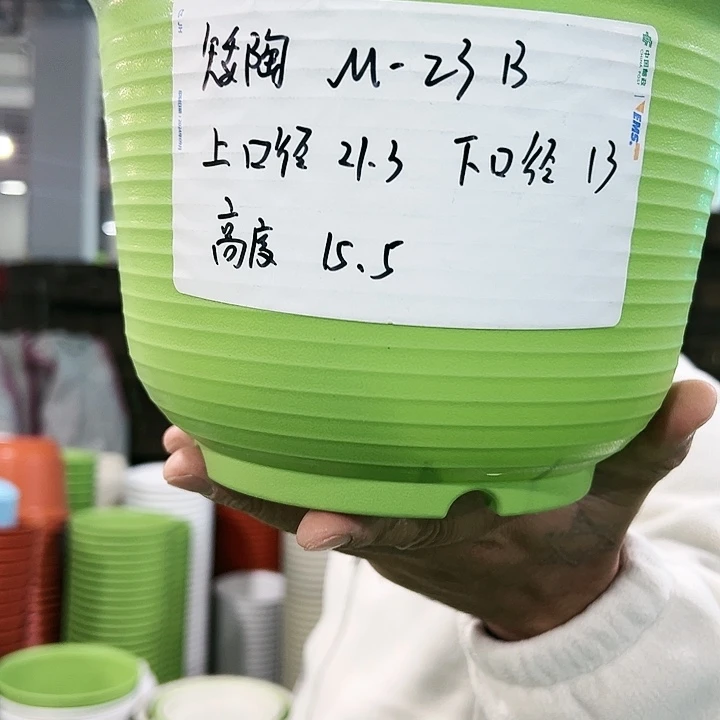 矮陶 M-23B
上口径 21.3 下口径 13
高度 15.5
中国邮政
CHINA POST
EMS